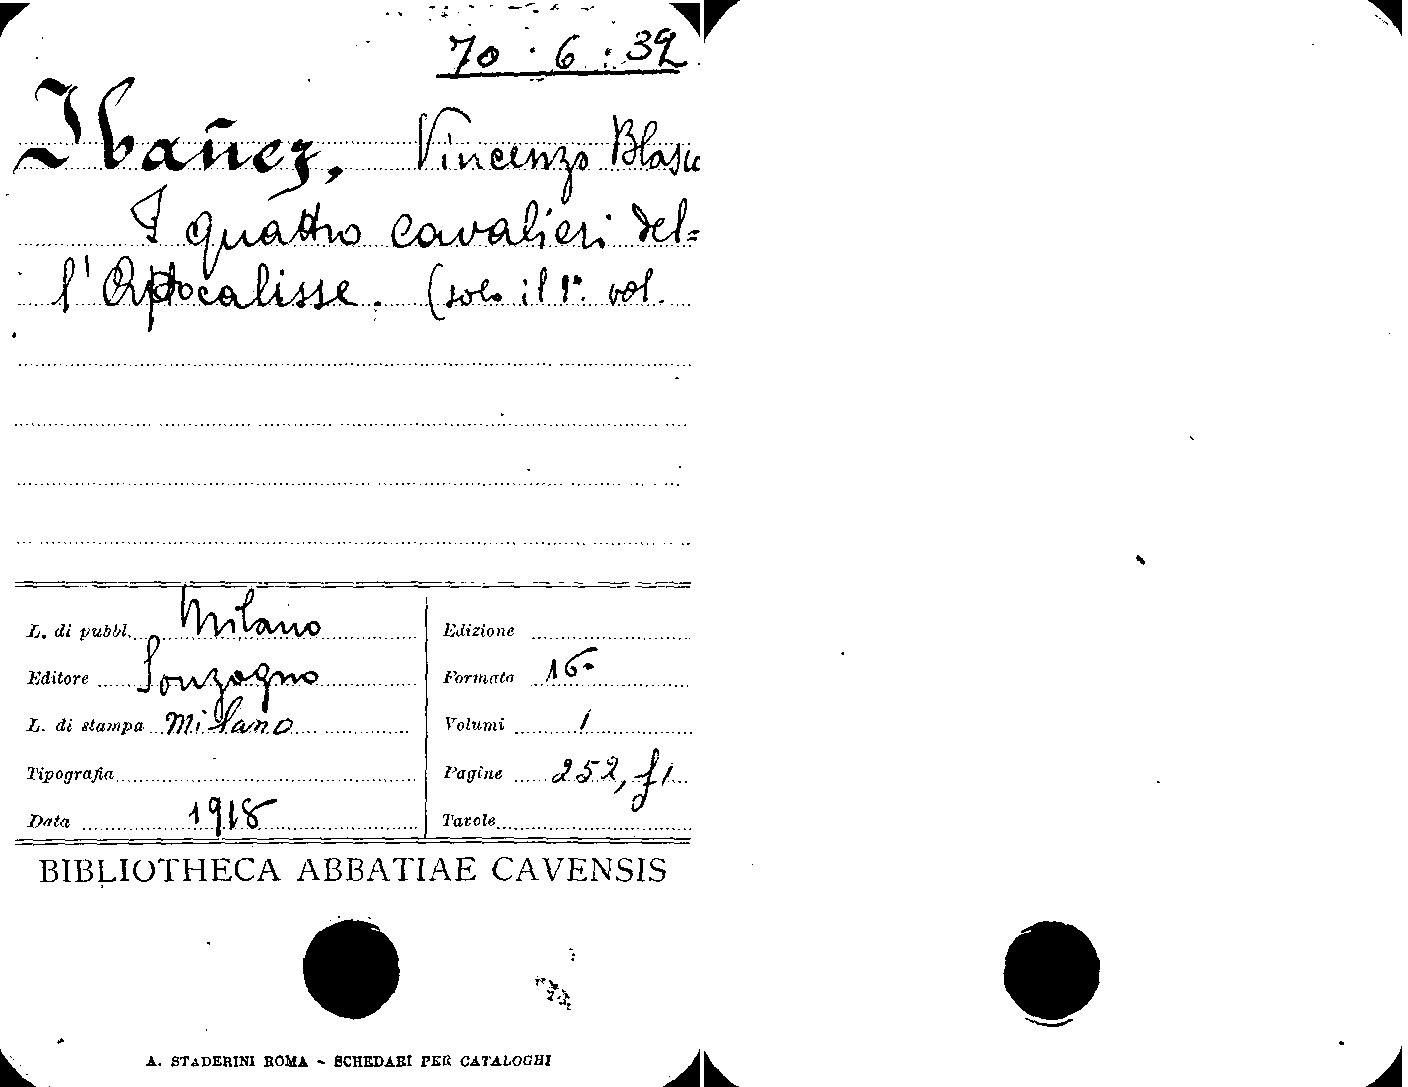 70 . 6 . 39
Ibañez, Vincenzo Blasc
I quattro cavalieri del=
l'Apocalisse. (solo il 1° vol.
L. di pubbl. Milano
Editore Sonzogno
L. di stampa Milano
Tipografia
Data 1918
Edizione
Formato 16°
Volumi 1
Pagine 252, f 1
Tavole
BIBLIOTHECA ABBATIAE CAVENSIS
A. STADERINI ROMA - SCHEDARI PER CATALOGHI